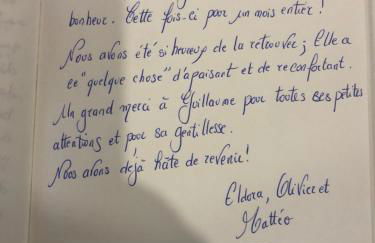 bonheur. Cette fois-ci pour un mois entier !
Nous avons été si heureux de la retrouver ; Elle a
ce "quelque chose" d'apaisant et de reconfortant.
Un grand merci à Guillaume pour toutes ses petites
attentions et pour sa gentillesse.
Nous avons déjà hâte de revenir !
Eldora, Olivier et
Mattéo